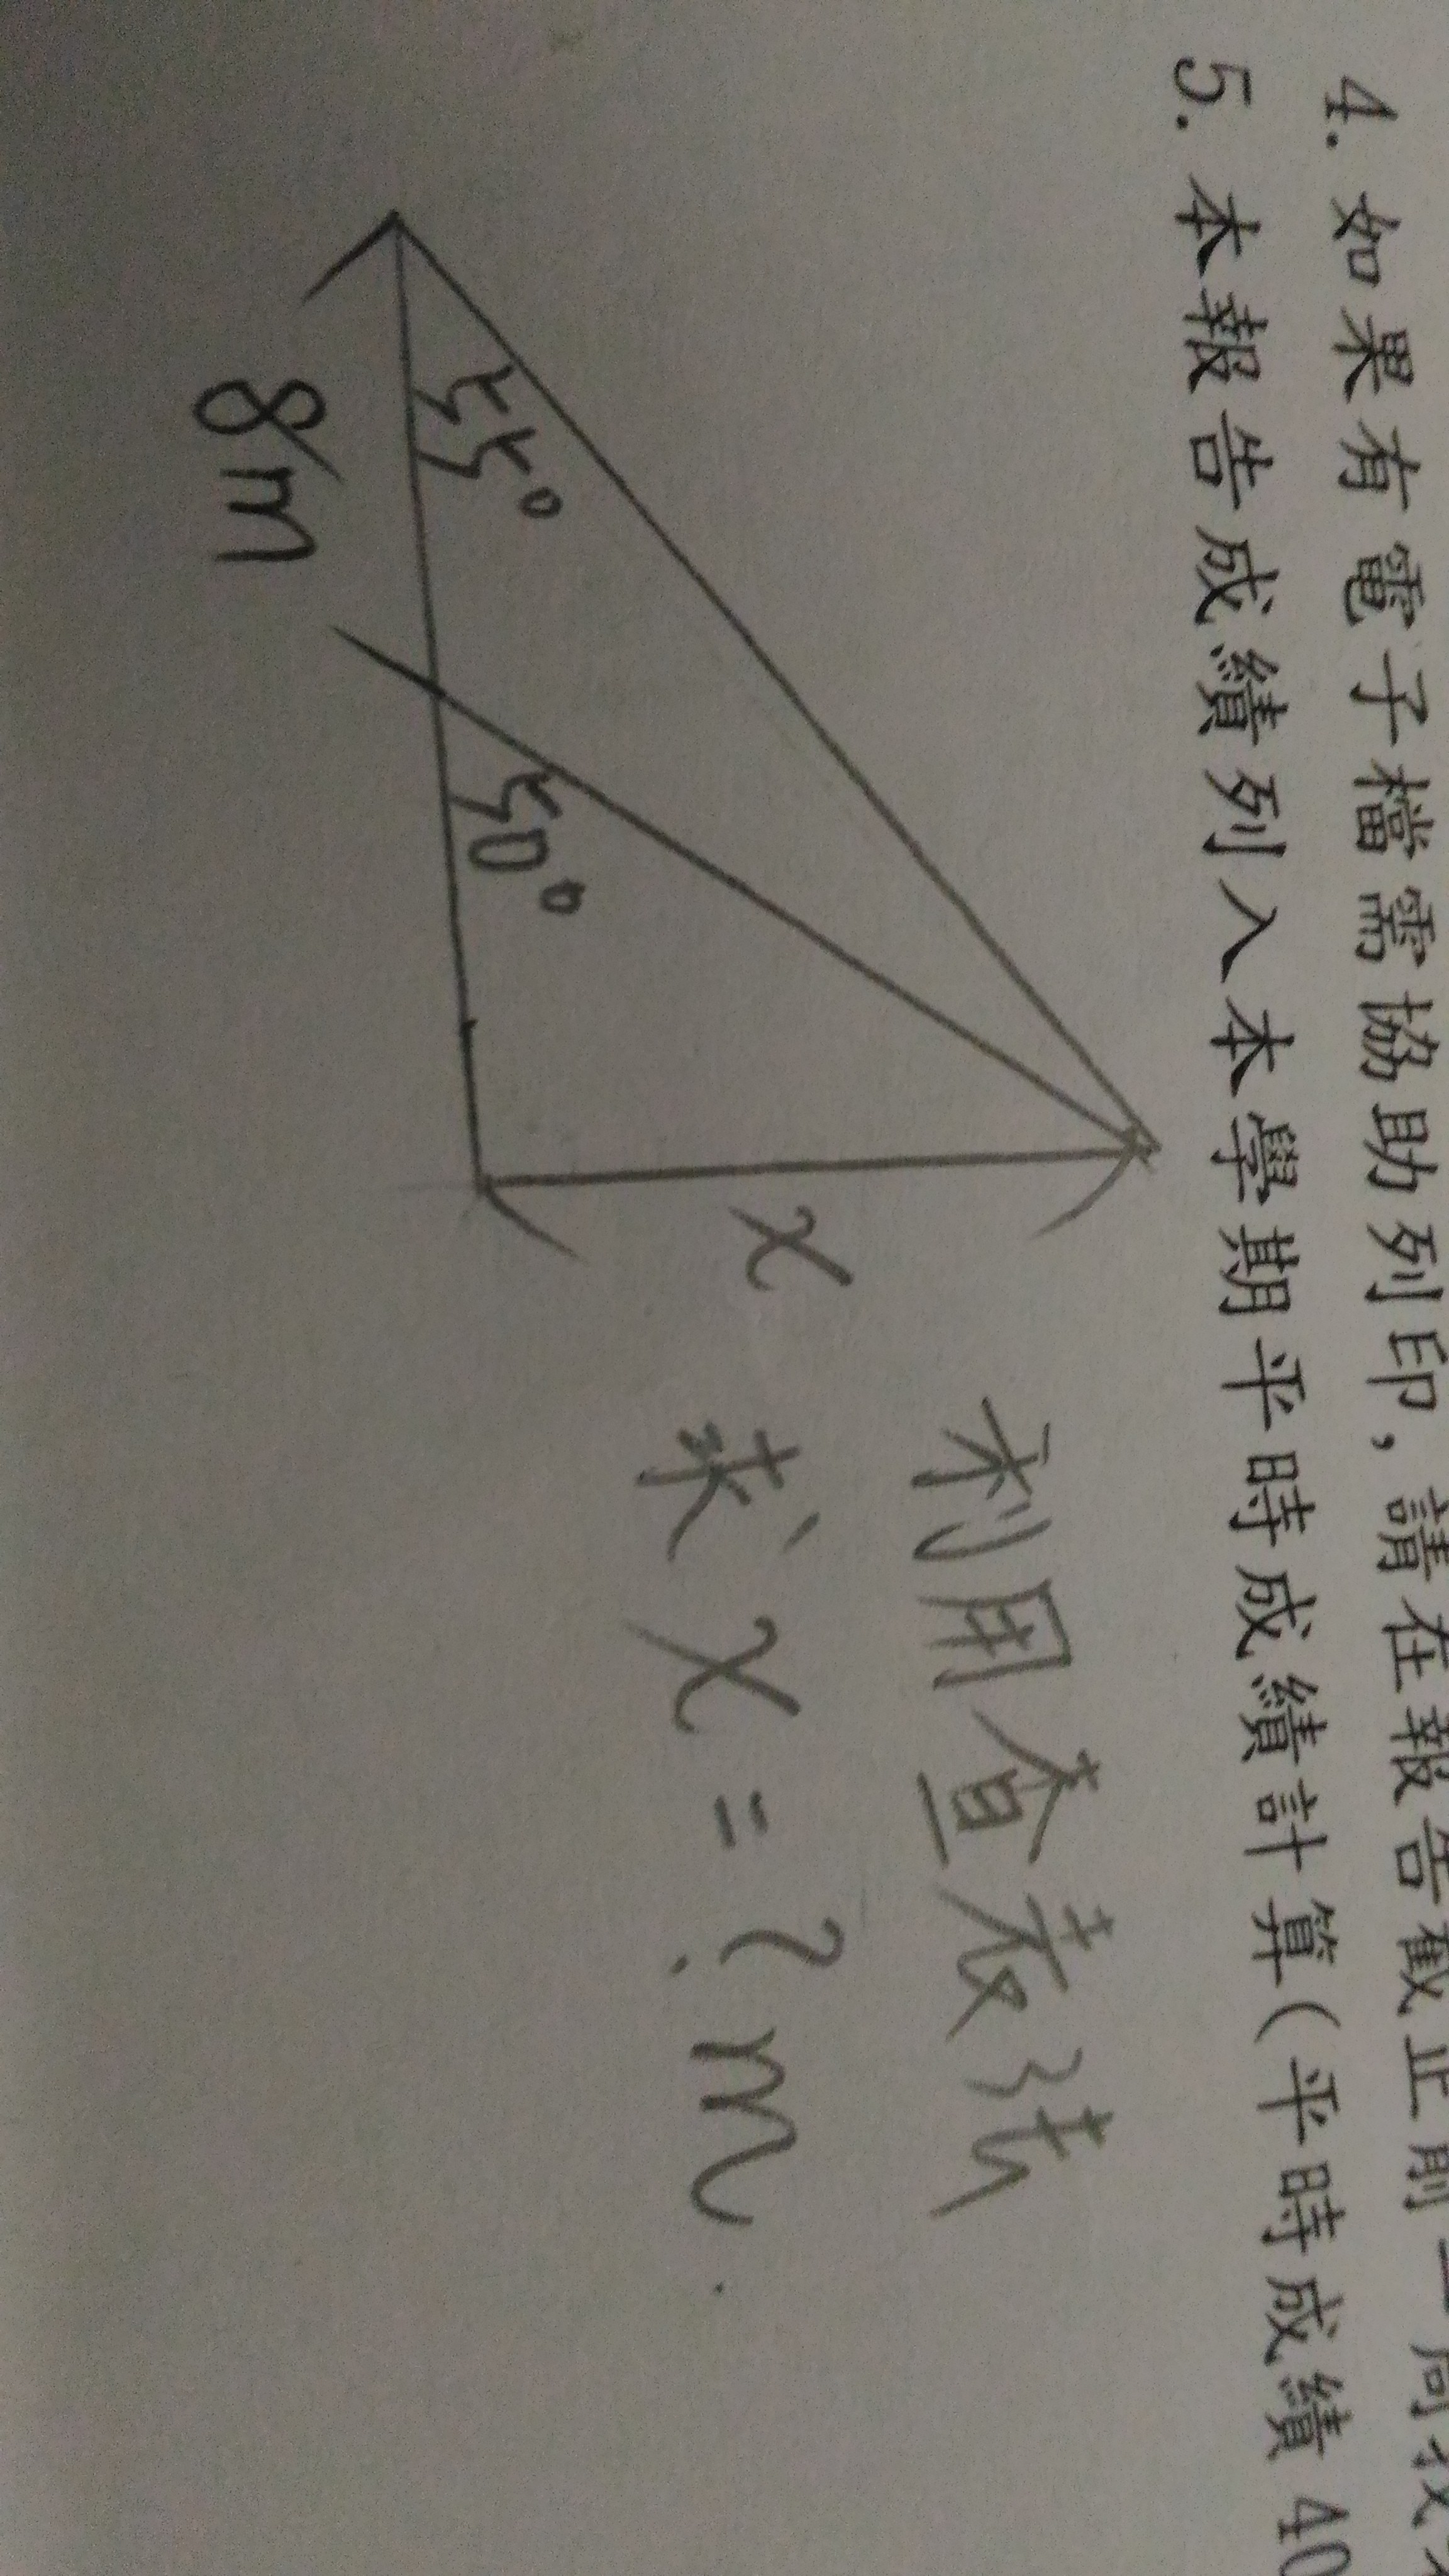 4. 如果有電子檔需協助列印，請在報告截止前一周找
5. 本報告成績列入本學期平時成績計算(平時成績 40
利用查表法
x
求 x = ? m.
55°
50°
8m